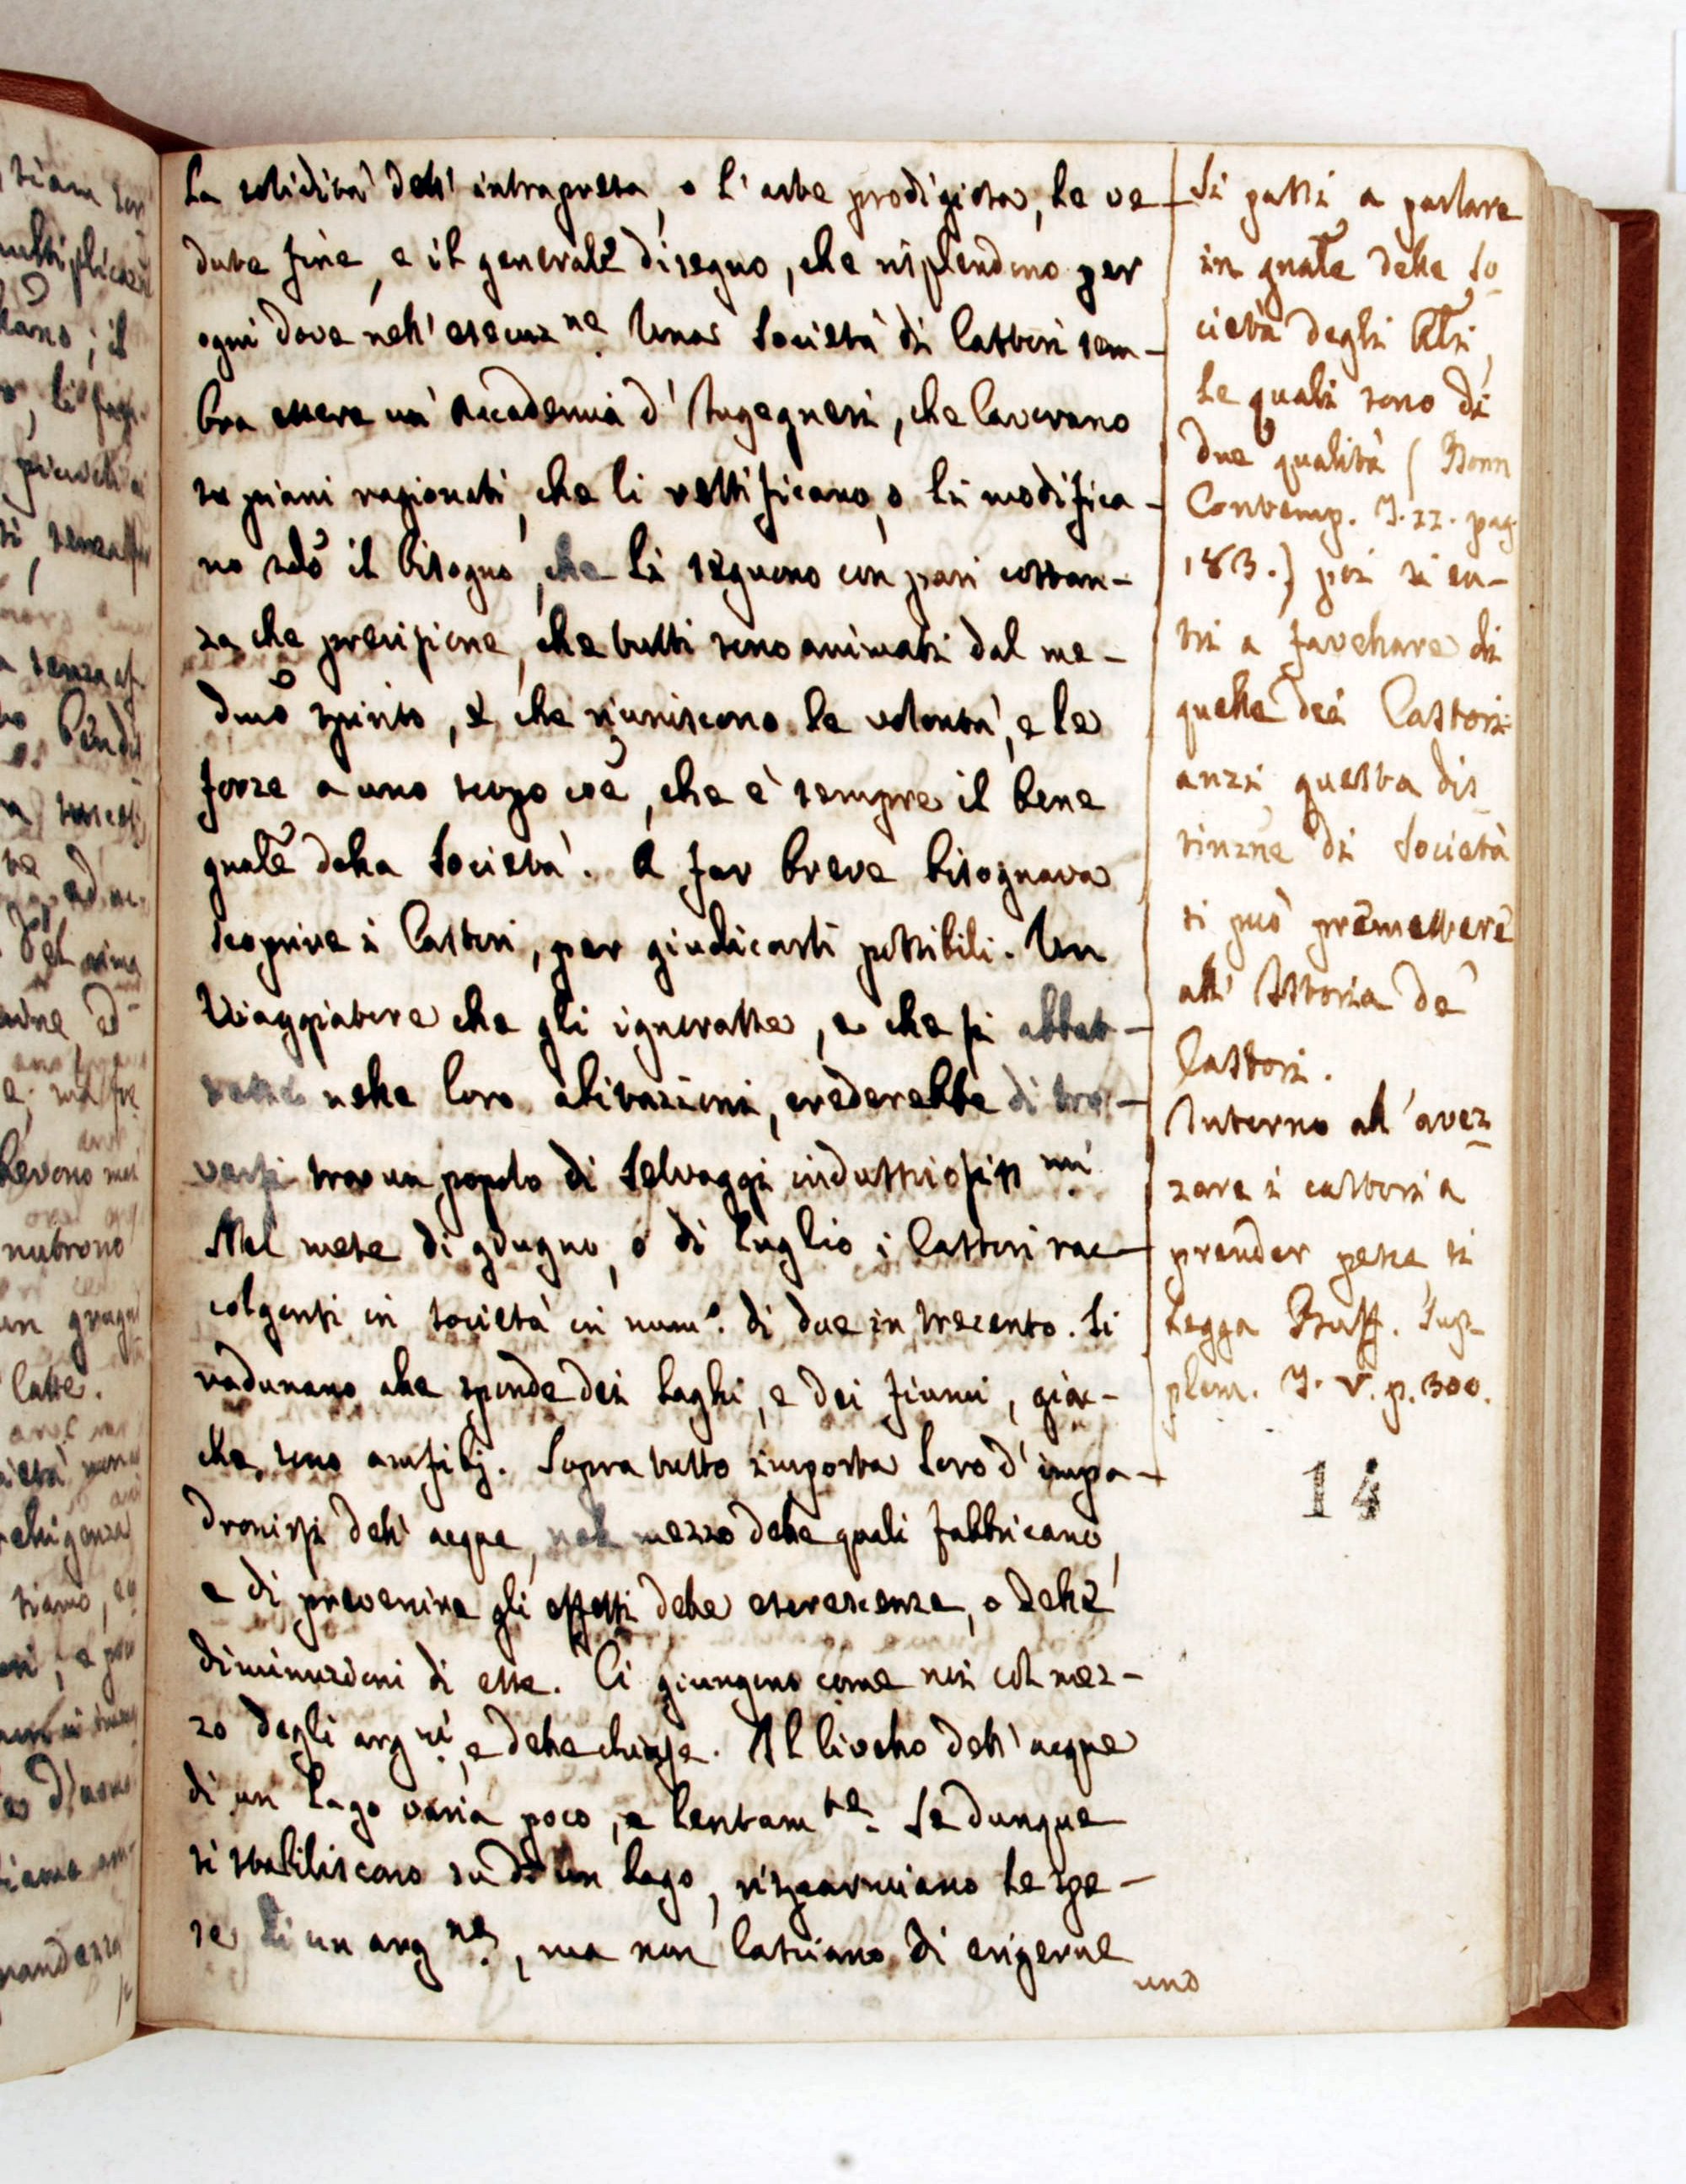 La solidità dell' intrapresa, o l'arte prodigiosa, le ve-
dute fine, e il generale disegno, che risplendono per
ogni dove nell' esecuz.ne Una Società di Castori sem-
bra essere un' Accademia d' Ingegneri, che lavorano
su piani ragionati, che li rettificano, o li modifica-
no sdo il bisogno, che li seguono con pari costan-
za che precisione, che tutti sono animati dal me-
dmo spirito, e che riuniscono le volontà, e le
forze a uno scopo coe, che è sempre il bene
gnale della Società. A far breve bisognava
scoprire i Castori, per giudicarli possibili. Un
Viaggiatore che gli ignorasse, e che si abbat-
tesse nelle loro abitazioni, crederebbe di tro-
varsi tra un popolo di Selvaggi industriosiss.mi
Nel mese di giugno, o di luglio i Castori rac-
colgonsi in società in num.o di due in trecento. Si
radunano alle sponde dei Laghi, e dei fiumi, giac-
chè sono amfibj. Sopra tutto importa loro d' impa-
dronirsi dell' acque, nel mezzo delle quali fabbricano,
e di prevenire gli effetti delle escrescenze, o delle
diminuzioni di esse. Ci giungono come noi col mez-
zo degli arg.ni, e delle chiuse. Il livello dell' acque
di un Lago varia poco, e lentam.te Se dunque
si stabiliscono su di un Lago, risparmiano le spe-
se di un arg.ne, ma non lasciano di erigerne
uno
Si passi a parlare
in gnale delle So-
cietà degli Ali,
le quali sono di
due qualità (Bonn
Contemp. T. 22. pag.
183.) poi si en-
tri a favellare di
quella dei Castori
anzi questa dis-
tinzne di Società
si può premettere
all' Istoria de'
Castori.
Intorno all' avez-
zare i castori a
prender pesce si
legga Buff. Sup-
plem. T. V. p. 300.
14